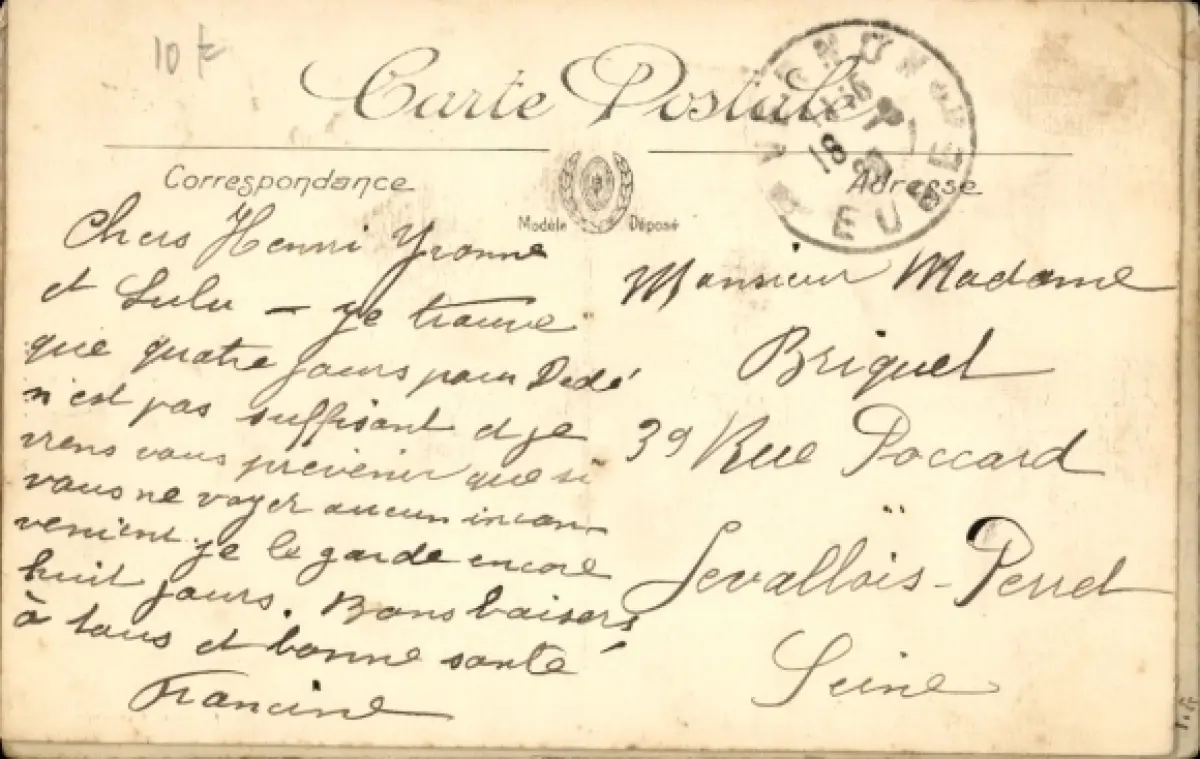 10 f
Carte Postale
Correspondance
Modèle Déposé
Adresse
VERNON
EURE
18
Chers Henri Yvonne
et Lulu - je trouve
que quatre jours pour Dédé
n'est pas suffisant et je
viens vous prévenir que si
vous ne voyer aucun incon
venient je le garde encore
huit jours. Bons baisers
à tous et bonne santé
Francine
Monsieur Madame
Briquet
39 Rue Poccard
Levalloïs-Perret
Seine